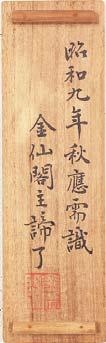 昭和九年秋應需識
金仙閣主諦了